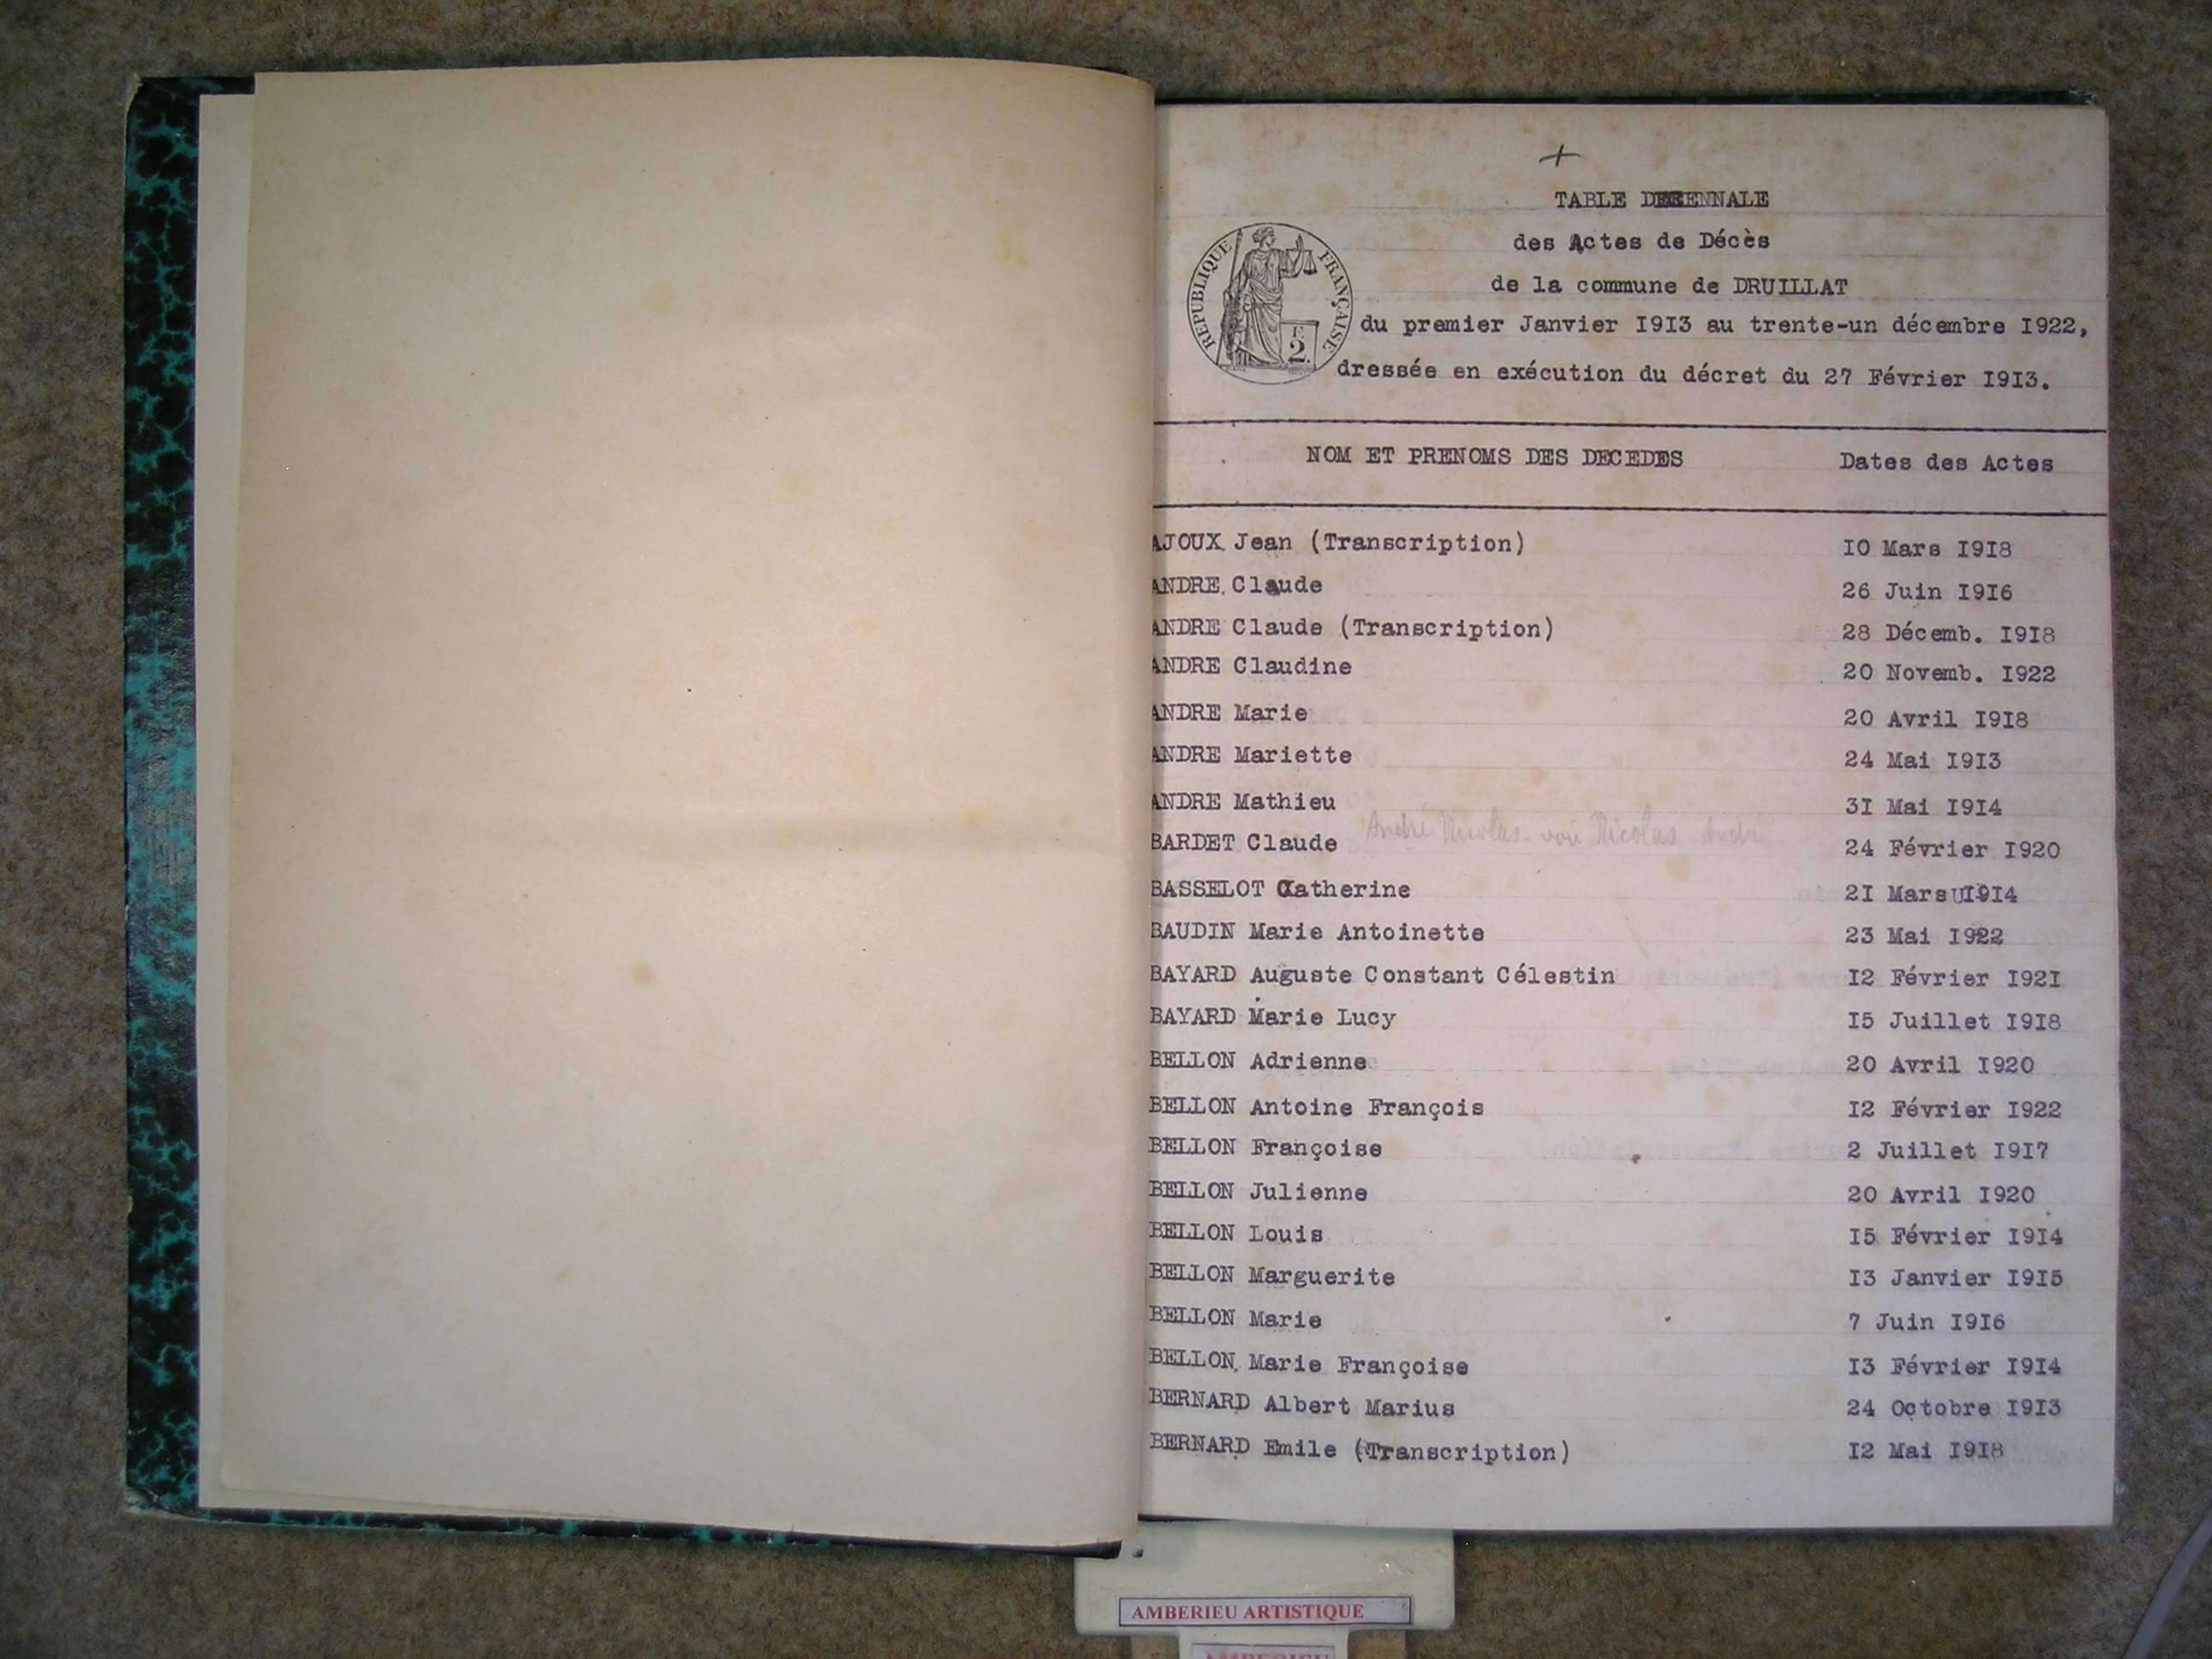 +
TABLE DECENNALE
des Actes de Décès
de la commune de DRUILLAT
REPUBLIQUE FRANÇAISE
F.
2.
du premier Janvier I9I3 au trente-un décembre I922,
dressée en exécution du décret du 27 Février I9I3.
NOM ET PRENOMS DES DECEDES Dates des Actes
AJOUX Jean (Transcription) IO Mars I9I8
ANDRE Claude 26 Juin I9I6
ANDRE Claude (Transcription) 28 Décemb. I9I8
ANDRE Claudine 20 Novemb. I922
ANDRE Marie 20 Avril I9I8
ANDRE Mariette 24 Mai I9I3
ANDRE Mathieu 3I Mai I9I4
André Nicolas - voir Nicolas André
BARDET Claude 24 Février I920
BASSELOT Catherine 2I Mars I9I4
BAUDIN Marie Antoinette 23 Mai I922
BAYARD Auguste Constant Célestin I2 Février I92I
BAYARD Marie Lucy I5 Juillet I9I8
BELLON Adrienne 20 Avril I920
BELLON Antoine François I2 Février I922
BELLON Françoise 2 Juillet I9I7
BELLON Julienne 20 Avril I920
BELLON Louis I5 Février I9I4
BELLON Marguerite I3 Janvier I9I5
BELLON Marie 7 Juin I9I6
BELLON Marie Françoise I3 Février I9I4
BERNARD Albert Marius 24 Octobre I9I3
BERNARD Emile (Transcription) I2 Mai I9I8
AMBERIEU ARTISTIQUE
AMBERIEU